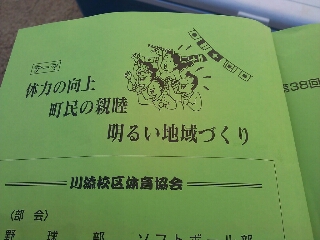 テーマ
体力の向上
町民の親睦
明るい地域づくり
第38回
校区体育協会
〈部 会〉
野 球 部
ソフトボール部